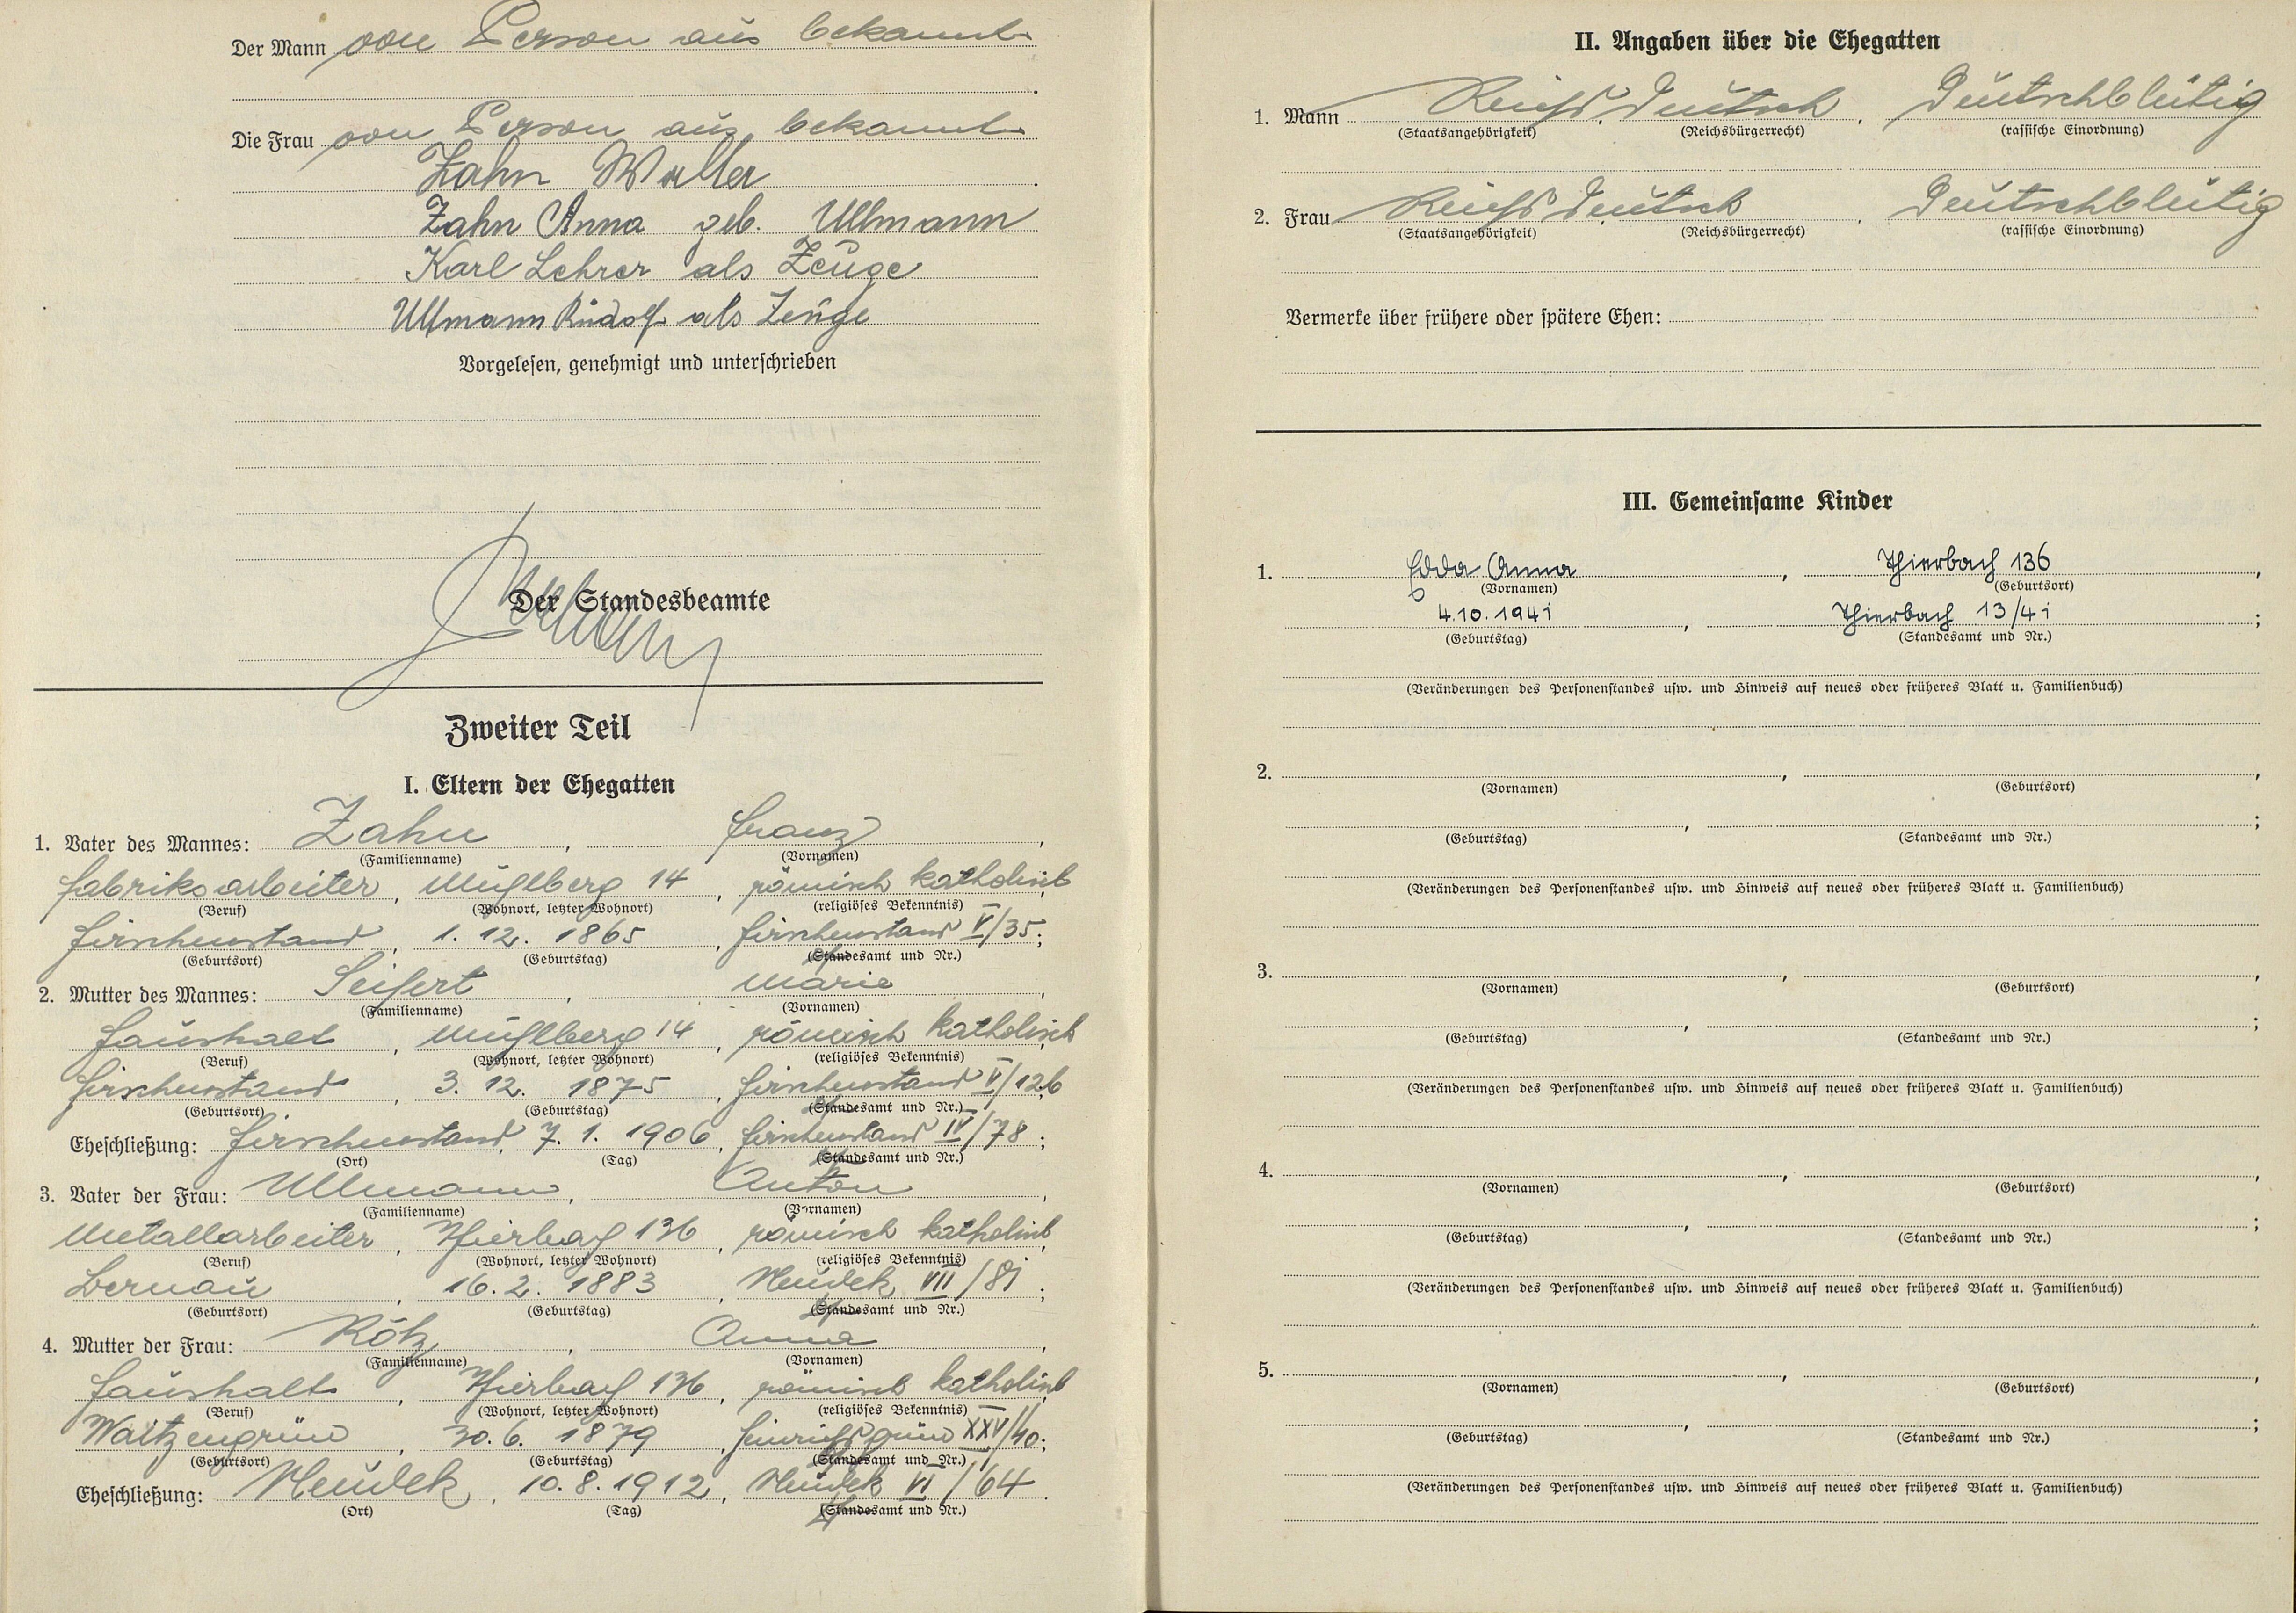 Der Mann von Person aus bekannt
Die Frau von Person aus bekannt
Zahn Walter
Zahn Anna geb. Ullmann
Karl Lehrer als Zeuge
Ullmann Rudolf als Zeuge
Vorgelesen, genehmigt und unterschrieben
Der Standesbeamte
Zweiter Teil
I. Eltern der Ehegatten
1. Vater des Mannes: Zahn, Franz,
(Familienname) (Vornamen)
Fabriksarbeiter, Mühlberg 14, römisch katholisch
(Beruf) (Wohnort, letzter Wohnort) (religiöses Bekenntnis)
Hirschenstand, 1. 12. 1865, Hirschenstand V/35;
(Geburtsort) (Geburtstag) (Standesamt und Nr.)
2. Mutter des Mannes: Seifert, Marie,
(Familienname) (Vornamen)
Haushalt, Mühlberg 14, römisch katholisch
(Beruf) (Wohnort, letzter Wohnort) (religiöses Bekenntnis)
Hirschenstand, 3. 12. 1875, Hirschenstand V/126
(Geburtsort) (Geburtstag) (Standesamt und Nr.)
Eheschließung: Hirschenstand, 7. 1. 1906, Hirschenstand IV/78;
(Ort) (Tag) (Standesamt und Nr.)
3. Vater der Frau: Ullmann, Anton,
(Familienname) (Vornamen)
Metallarbeiter, Thierbach 136, römisch katholisch
(Beruf) (Wohnort, letzter Wohnort) (religiöses Bekenntnis)
Bernau, 16. 2. 1883, Neudek VIII/81;
(Geburtsort) (Geburtstag) (Standesamt und Nr.)
4. Mutter der Frau: Rötz, Anna,
(Familienname) (Vornamen)
Haushalt, Thierbach 136, römisch katholisch
(Beruf) (Wohnort, letzter Wohnort) (religiöses Bekenntnis)
Waitzengrün, 30. 6. 1879, Heinrichsgrün XXV/40;
(Geburtsort) (Geburtstag) (Standesamt und Nr.)
Eheschließung: Neudek, 10. 8. 1912, Neudek VI/64.
(Ort) (Tag) (Standesamt und Nr.)
II. Angaben über die Ehegatten
1. Mann Reichsdeutsch, Deutschblütig
(Staatsangehörigkeit) (Reichsbürgerrecht) (rassische Einordnung)
2. Frau Reichsdeutsch, Deutschblütig
(Staatsangehörigkeit) (Reichsbürgerrecht) (rassische Einordnung)
Vermerke über frühere oder spätere Ehen:
III. Gemeinsame Kinder
1. Edda Anna, Thierbach 136,
(Vornamen) (Geburtsort)
4.10.1941, Thierbach 13/41;
(Geburtstag) (Standesamt und Nr.)
(Veränderungen des Personenstandes usw. und Hinweis auf neues oder früheres Blatt u. Familienbuch)
2. , ,
(Vornamen) (Geburtsort)
, ;
(Geburtstag) (Standesamt und Nr.)
(Veränderungen des Personenstandes usw. und Hinweis auf neues oder früheres Blatt u. Familienbuch)
3. , ,
(Vornamen) (Geburtsort)
, ;
(Geburtstag) (Standesamt und Nr.)
(Veränderungen des Personenstandes usw. und Hinweis auf neues oder früheres Blatt u. Familienbuch)
4. , ,
(Vornamen) (Geburtsort)
, ;
(Geburtstag) (Standesamt und Nr.)
(Veränderungen des Personenstandes usw. und Hinweis auf neues oder früheres Blatt u. Familienbuch)
5. , ,
(Vornamen) (Geburtsort)
, ;
(Geburtstag) (Standesamt und Nr.)
(Veränderungen des Personenstandes usw. und Hinweis auf neues oder früheres Blatt u. Familienbuch)